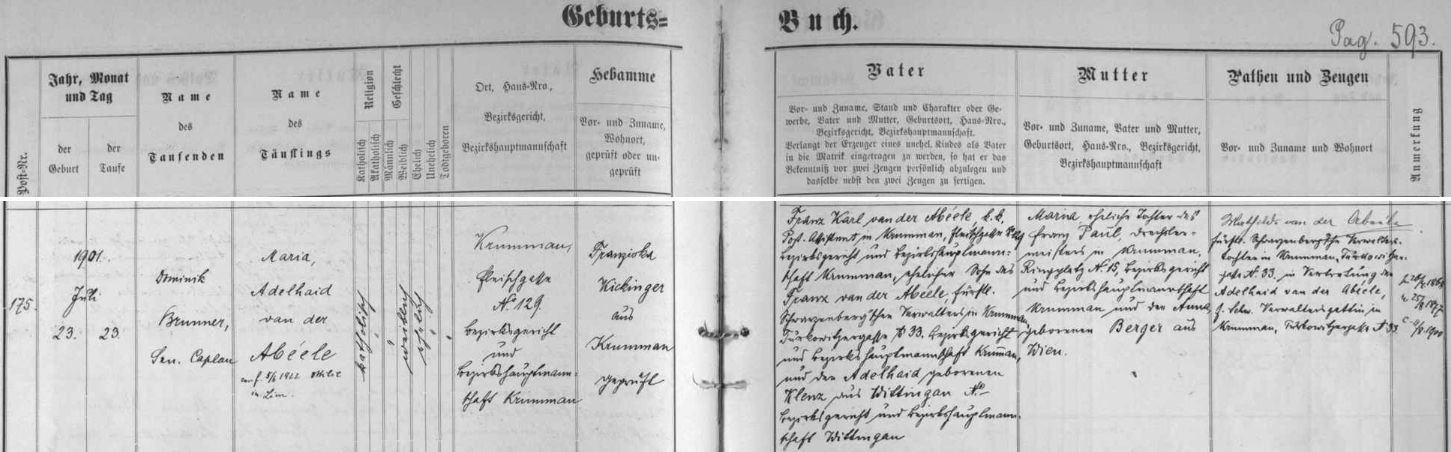 Geburts=
Buch.
Pag. 593.
Post-Nr.
Jahr, Monat
und Tag
der
Geburt
der
Taufe
Name
des
Taufenden
Name
des
Täuflings
Religion
Katholisch
Akatholisch
Geschlecht
Männlich
Weiblich
Ehelich
Unehelich
Todtgeboren
Ort, Haus-Nro.,
Bezirksgericht,
Bezirkshauptmannschaft
Hebamme
Vor- und Zuname,
Wohnort,
geprüft oder un-
geprüft
Vater
Vor- und Zuname, Stand und Charakter oder Ge-
werbe, Vater und Mutter, Geburtsort, Haus-Nro.,
Bezirksgericht, Bezirkshauptmannschaft.
Verlangt der Erzeuger eines unehel. Kindes als Vater
in die Matrik eingetragen zu werden, so hat er das
Bekenntniß vor zwei Zeugen persönlich abzulegen und
dasselbe nebst den zwei Zeugen zu fertigen.
Mutter
Vor- und Zuname, Vater und Mutter,
Geburtsort, Haus-Nro., Bezirksgericht,
Bezirkshauptmannschaft
Pathen und Zeugen
Vor- und Zuname und Wohnort
Anmerkung
175.
1901.
Juli
23. 23.
Dominik
Brunner,
Sen. Caplan
Maria,
Adelhaid
van der
Abéele
katholisch
weiblich
ehelich
Krummau,
Fleischgasse
N. 129.
Bezirksgericht
und
Bezirkshauptmann-
schaft Krummau
Franziska
Kickinger
aus
Krummau
geprüft
Franz Karl van der Abéele k.k.
Post-Assistent, in Krummau, Fleischgasse
Bezirksgericht und Bezirkshauptmann-
schaft Krummau, ehelicher Sohn des
Franz van der Abeele, fürstl.
Schwarzenberg'schen Verwalters in Krummau,
Türkowitzergasse N 33. Bezirksgericht
und Bezirkshauptmannschaft Krummau,
und der Adelhaid geborenen
Klenz aus Wittingau No
Bezirksgericht und Bezirkshauptmann-
schaft Wittingau
Maria, eheliche Tochter des
Franz Paul, Drechsler-
meisters in Krummau,
Ringplatz N. 15, Bezirksgericht
und Bezirkshauptmannschaft
Krummau und der Anna
geborenen Berger aus
Wien.
Mathilde van der Abeele
fürstl. Schwarzenberg'sche Verwalters-
tochter in Krummau, Türkowitzer-
gasse N. 33, in Vertretung der
Adelhaid van der Abéele,
Verwaltersgattin in
Krummau, Türkowitzergasse N 33.